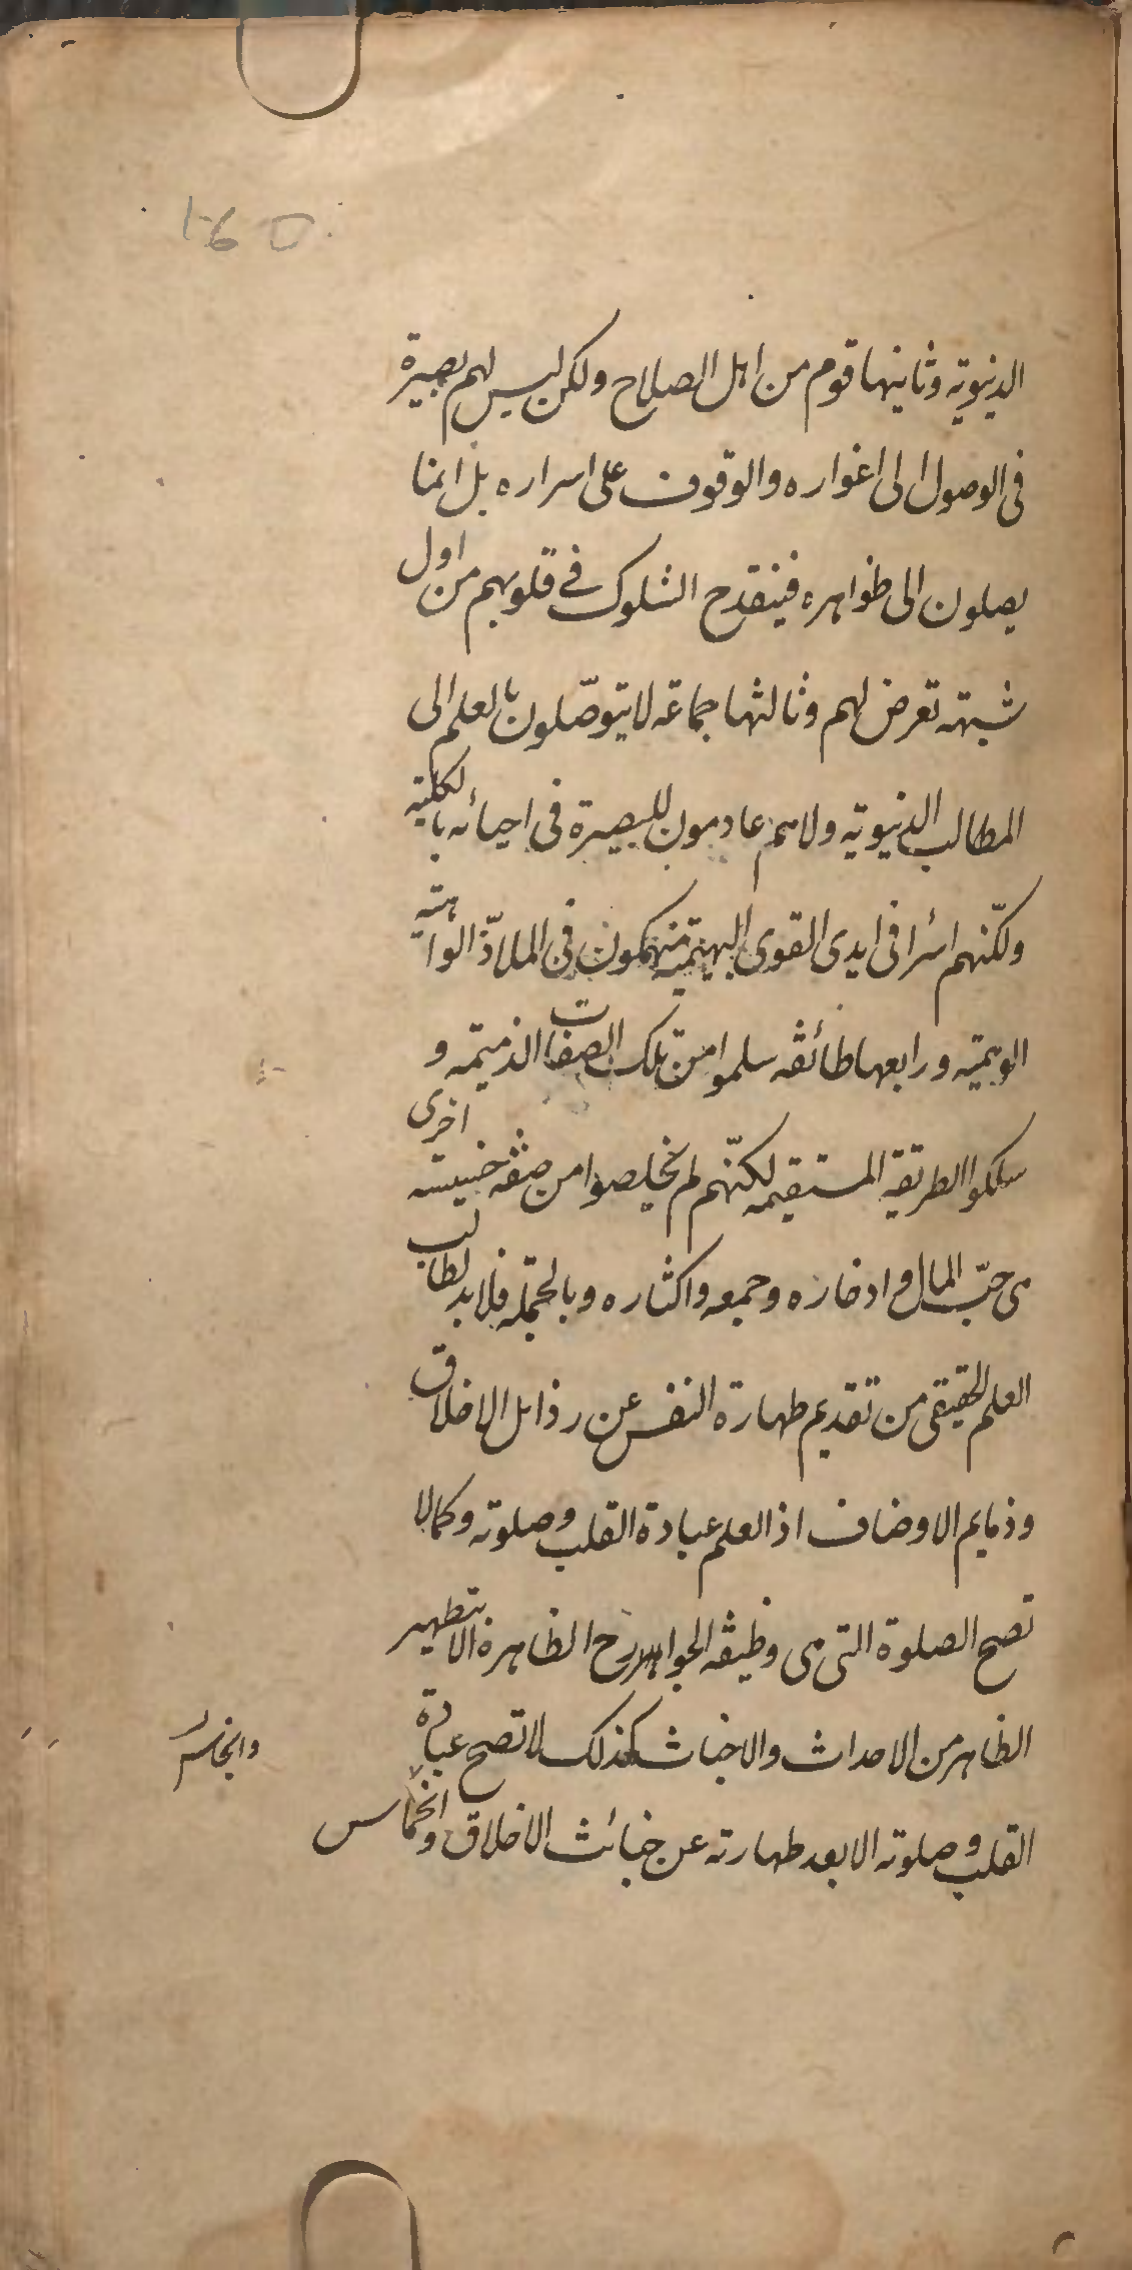 الدنيوية وثانيها قوم من اهل الصلاح ولكن ليس لهم بصيرة
فى الوصول الى اغواره والوقوف على اسراره بل انما
يصلون الى ظواهره فينقدح الشكوك فى قلوبهم من اول
شبهة تعرض لهم وثالثها جماعة لا يتوصّلون بالعلم الى
المطالب الدنيوية ولا هم عادمون للبصيرة فى احيائه بالكلية
ولكنّهم اسرا فى ايدى القوى البهيمية منهمكون فى الملاذّ الواهية
الوهمية ورابعها طائفة سلموا من تلك الصفات الذميمة و
سلكوا الطريقة المستقيمة لكنّهم لم يخلصوا من صفة خبيثة اخرى
هى حبّ المال وادخاره وجمعه واكثاره وبالجملة فلا بد لطالب
العلم الحقيقى من تقديم طهارة النفس عن رذايل الاخلاق
وذمايم الاوصاف اذ العلم عبادة القلب وصلوته وكما لا
تصح الصلوة التى هى وظيفة الجوارح الظاهرة الا بتطهير
الظاهر من الاحداث والاخباث كذلك لا تصح عبادة
القلب وصلوته الا بعد طهارته عن خبائث الاخلاق وانجاس